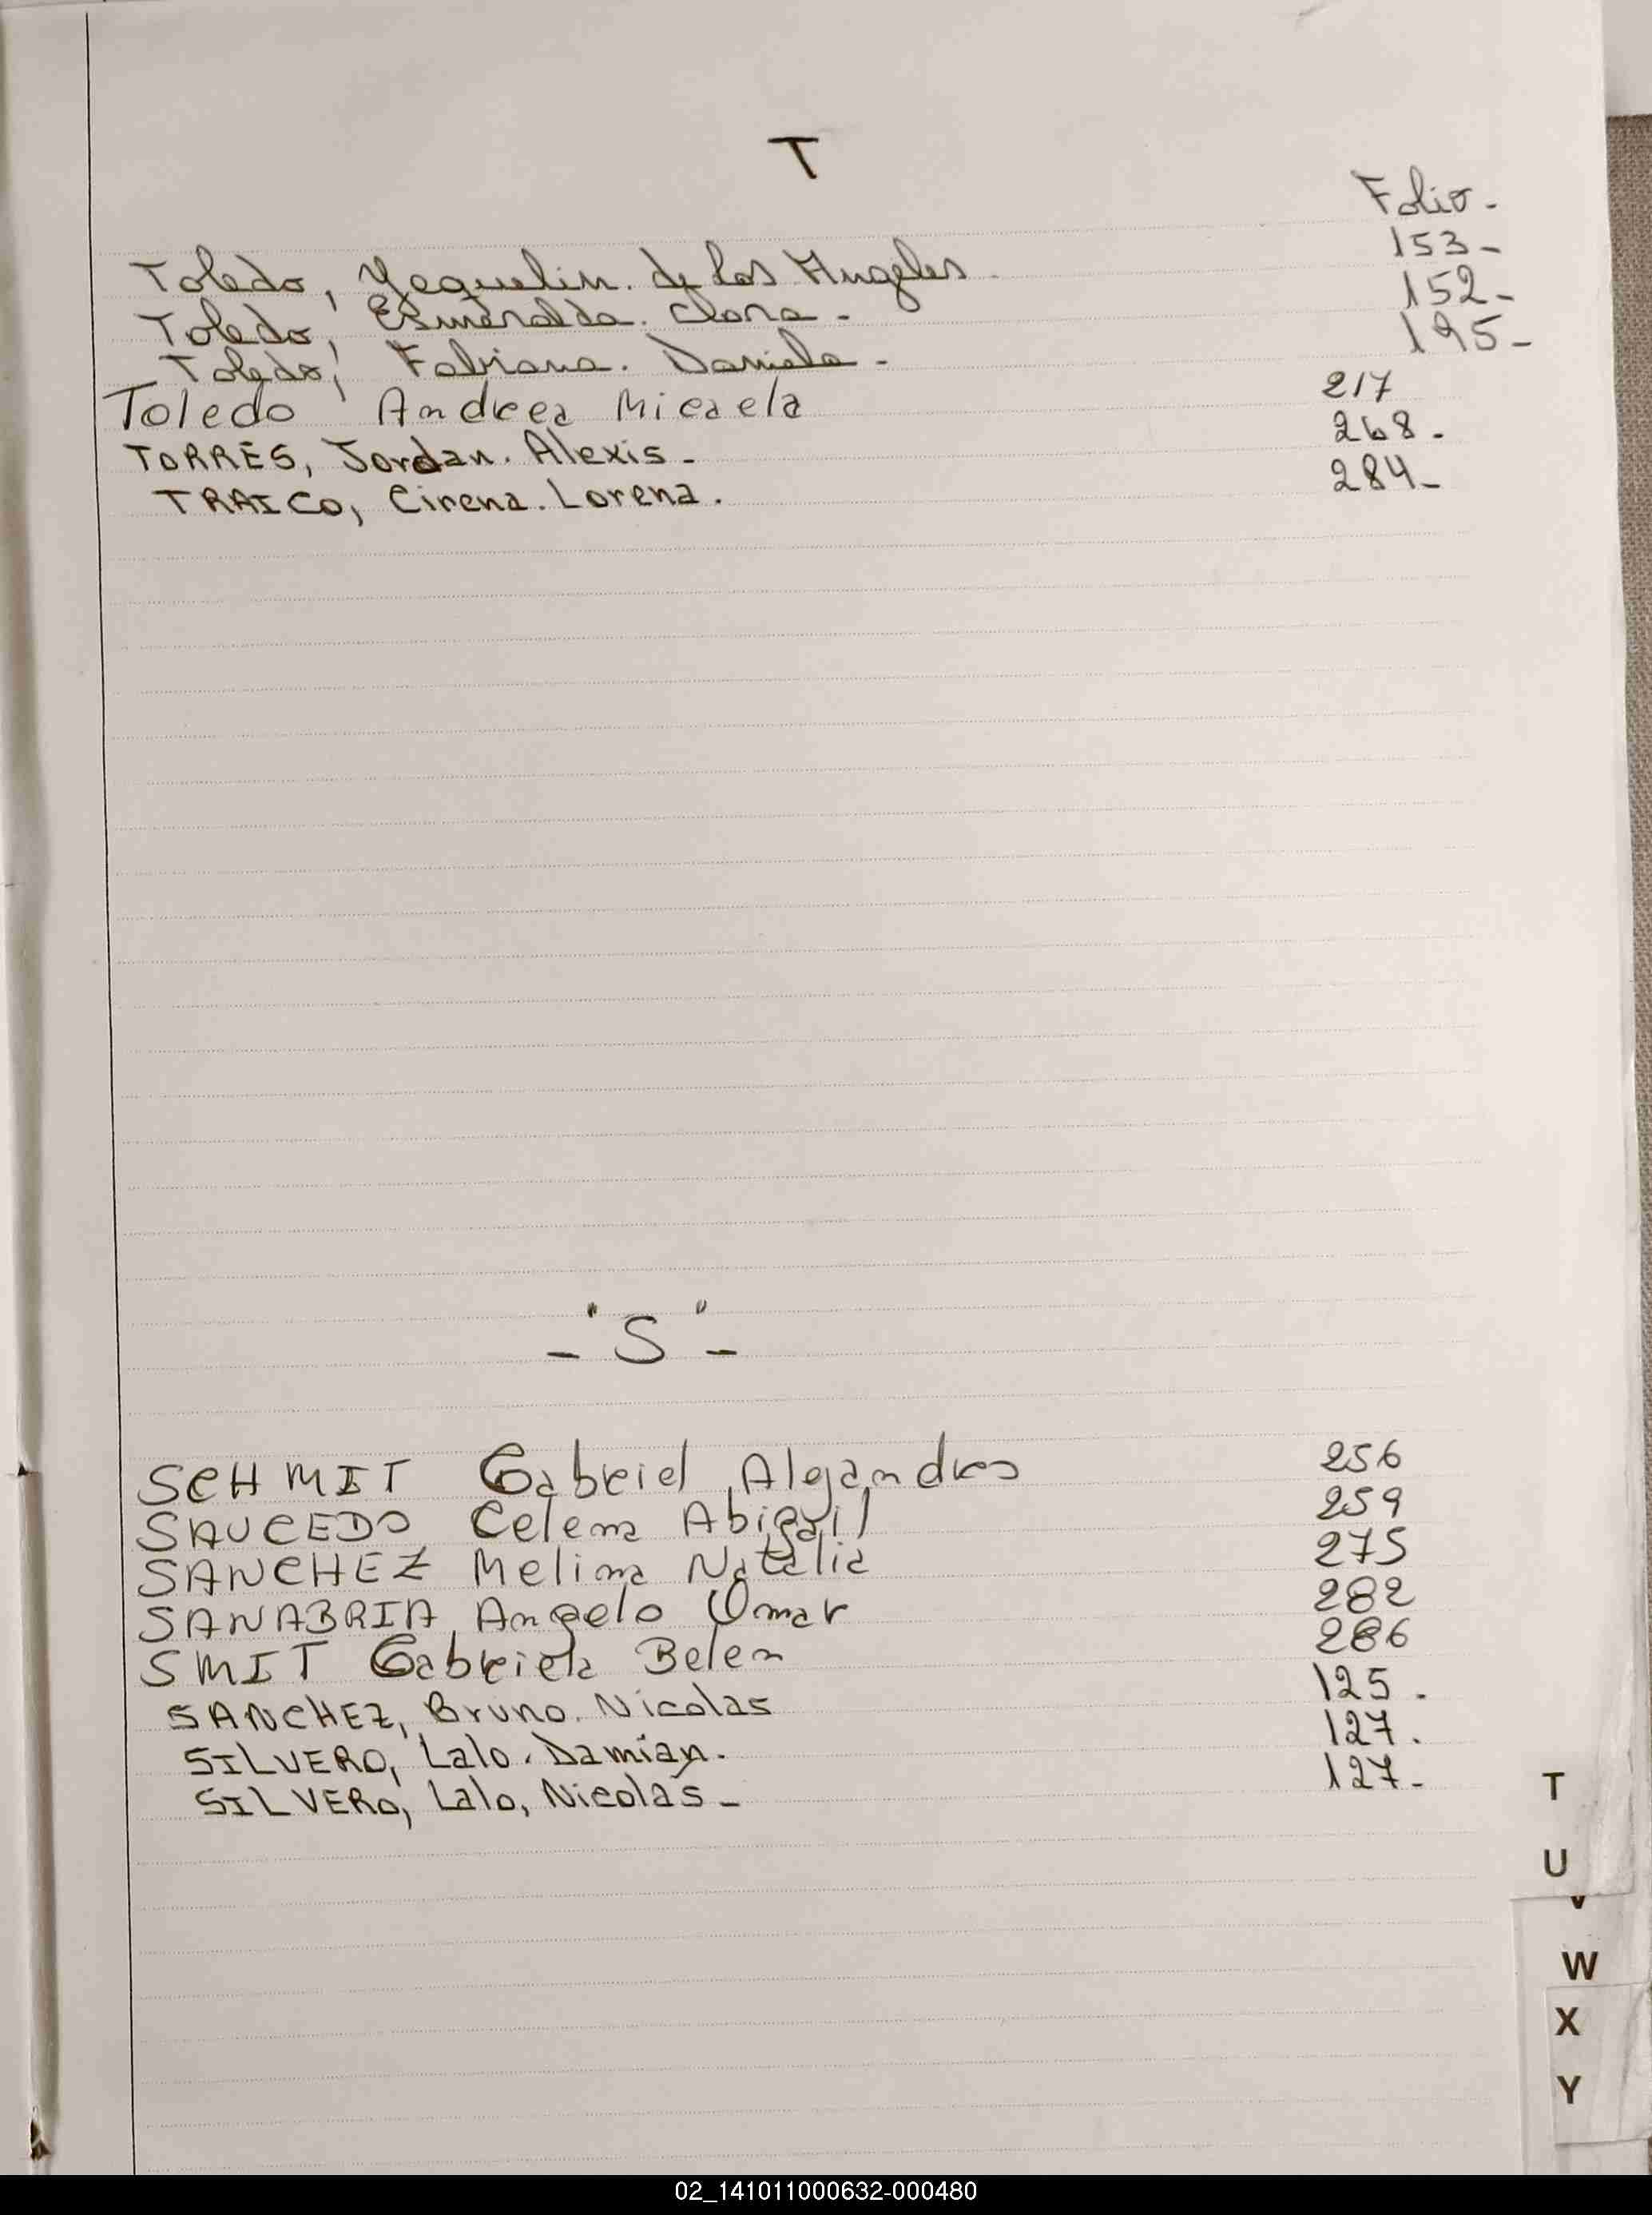 T
Folio.
Toledo, Yequelin. de los Angeles. 153-
Toledo, Esmeralda. Clara. 152-
Toledo, Fabiana. Daniela. 195-
Toledo Andrea Micaela 217
TORRES, Jordan. Alexis. 268.
TRAICO, Cirena. Lorena. 284-
- "S" -
SCHMIT Gabriel Alejandro 256
SAUCEDO Celena Abigail 259
SANCHEZ Melina Natalia 275
SANABRIA Angelo Omar 282
SMIT Gabriela Belen 286
SANCHEZ, Bruno. Nicolas 125.
SILVERO, Lalo. Damian. 127.
SILVERO, Lalo, Nicolas - 127-
T
U
V
W
X
Y
02_141011000632-000480